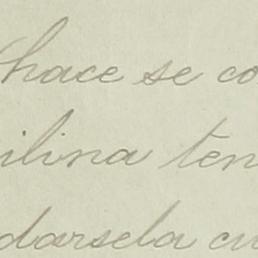 hace se co
ilina ten
darsela cu